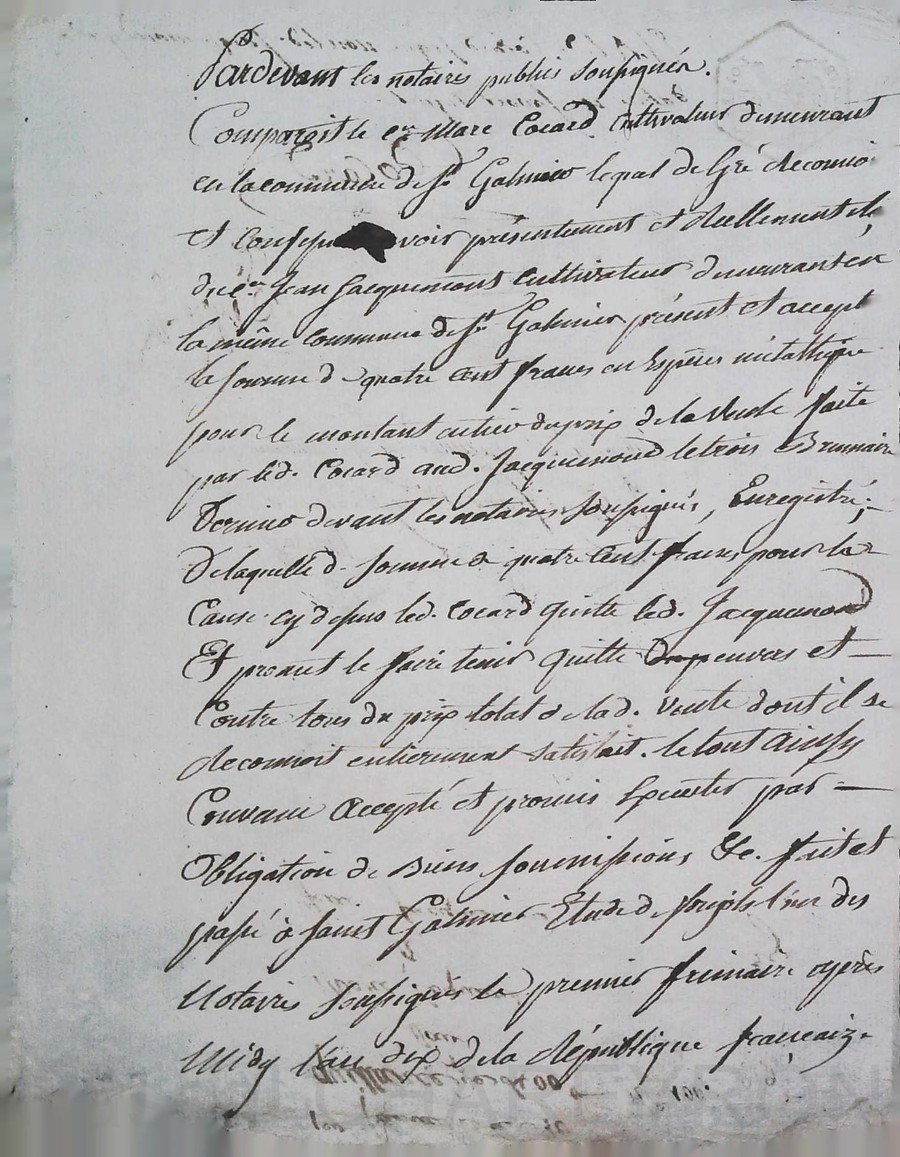 Pardevant les notaires publics soussignés.
Comparoit le cen Marc Cocard cultivateur demeurant
en la commune de St Galmier lequel de Gré a reconnu
et confessé avoir présentement et réellement
du cen Jean Jacquemont cultivateur demeurant en
la même commune de St Galmier présent et accept
la somme de quatre cent francs en Espèces métallique
pour le montant entier du prix de la vente faite
par led. Cocard aud. Jacquemond le trois Brumaire
Dernier devant les notaires soussignés, Enregistré;
De laquelle d. somme de quatre cent francs pour la
Cause cy dessus led. Cocard quitte led. Jacquemond
Et promet le faire tenir quitte envers et
Contre tous du prix total de lad. vente dont il se
reconnoit entierement satisfait. le tout ainsy
Convenu accepté et promis Executer par
Obligation de Biens soumissions &c. fait et
passé à Saint Galmier Etude de l'un des
Notaires soussignés le premier frimaire après
Midy l'an dix de la République françaize